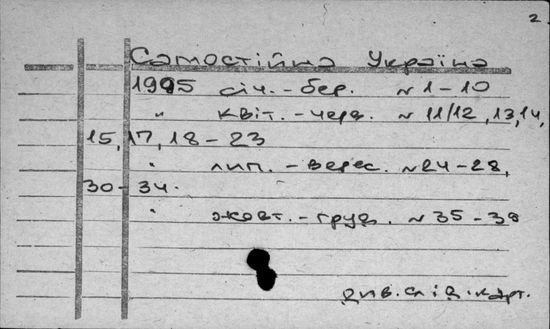 2
Самостійна Україна
1995 січ. - бер. № 1-10
" квіт. - черв. № 11/12, 13, 14,
15, 17, 18-23
" лип. - верес. № 24-28,
30-34.
" жовт. - груд. № 35-38
див. слід. карт.